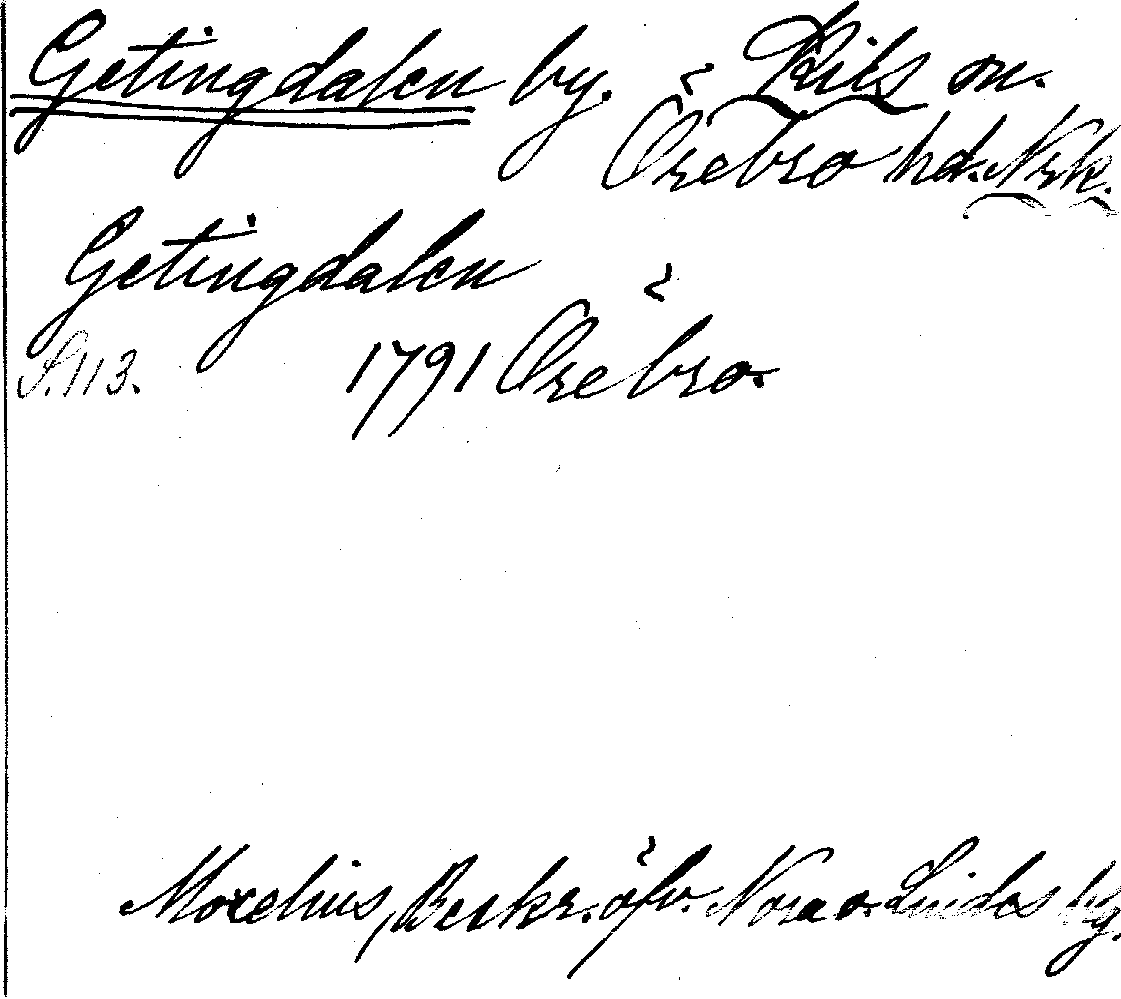 Getingdalen by. Kils sn.
Örebro hd. Nrk.
Getingdalen
S. 113. 1791 Örebro.
Morelius, Beskr. öfv. Nora o. Lindes bg.